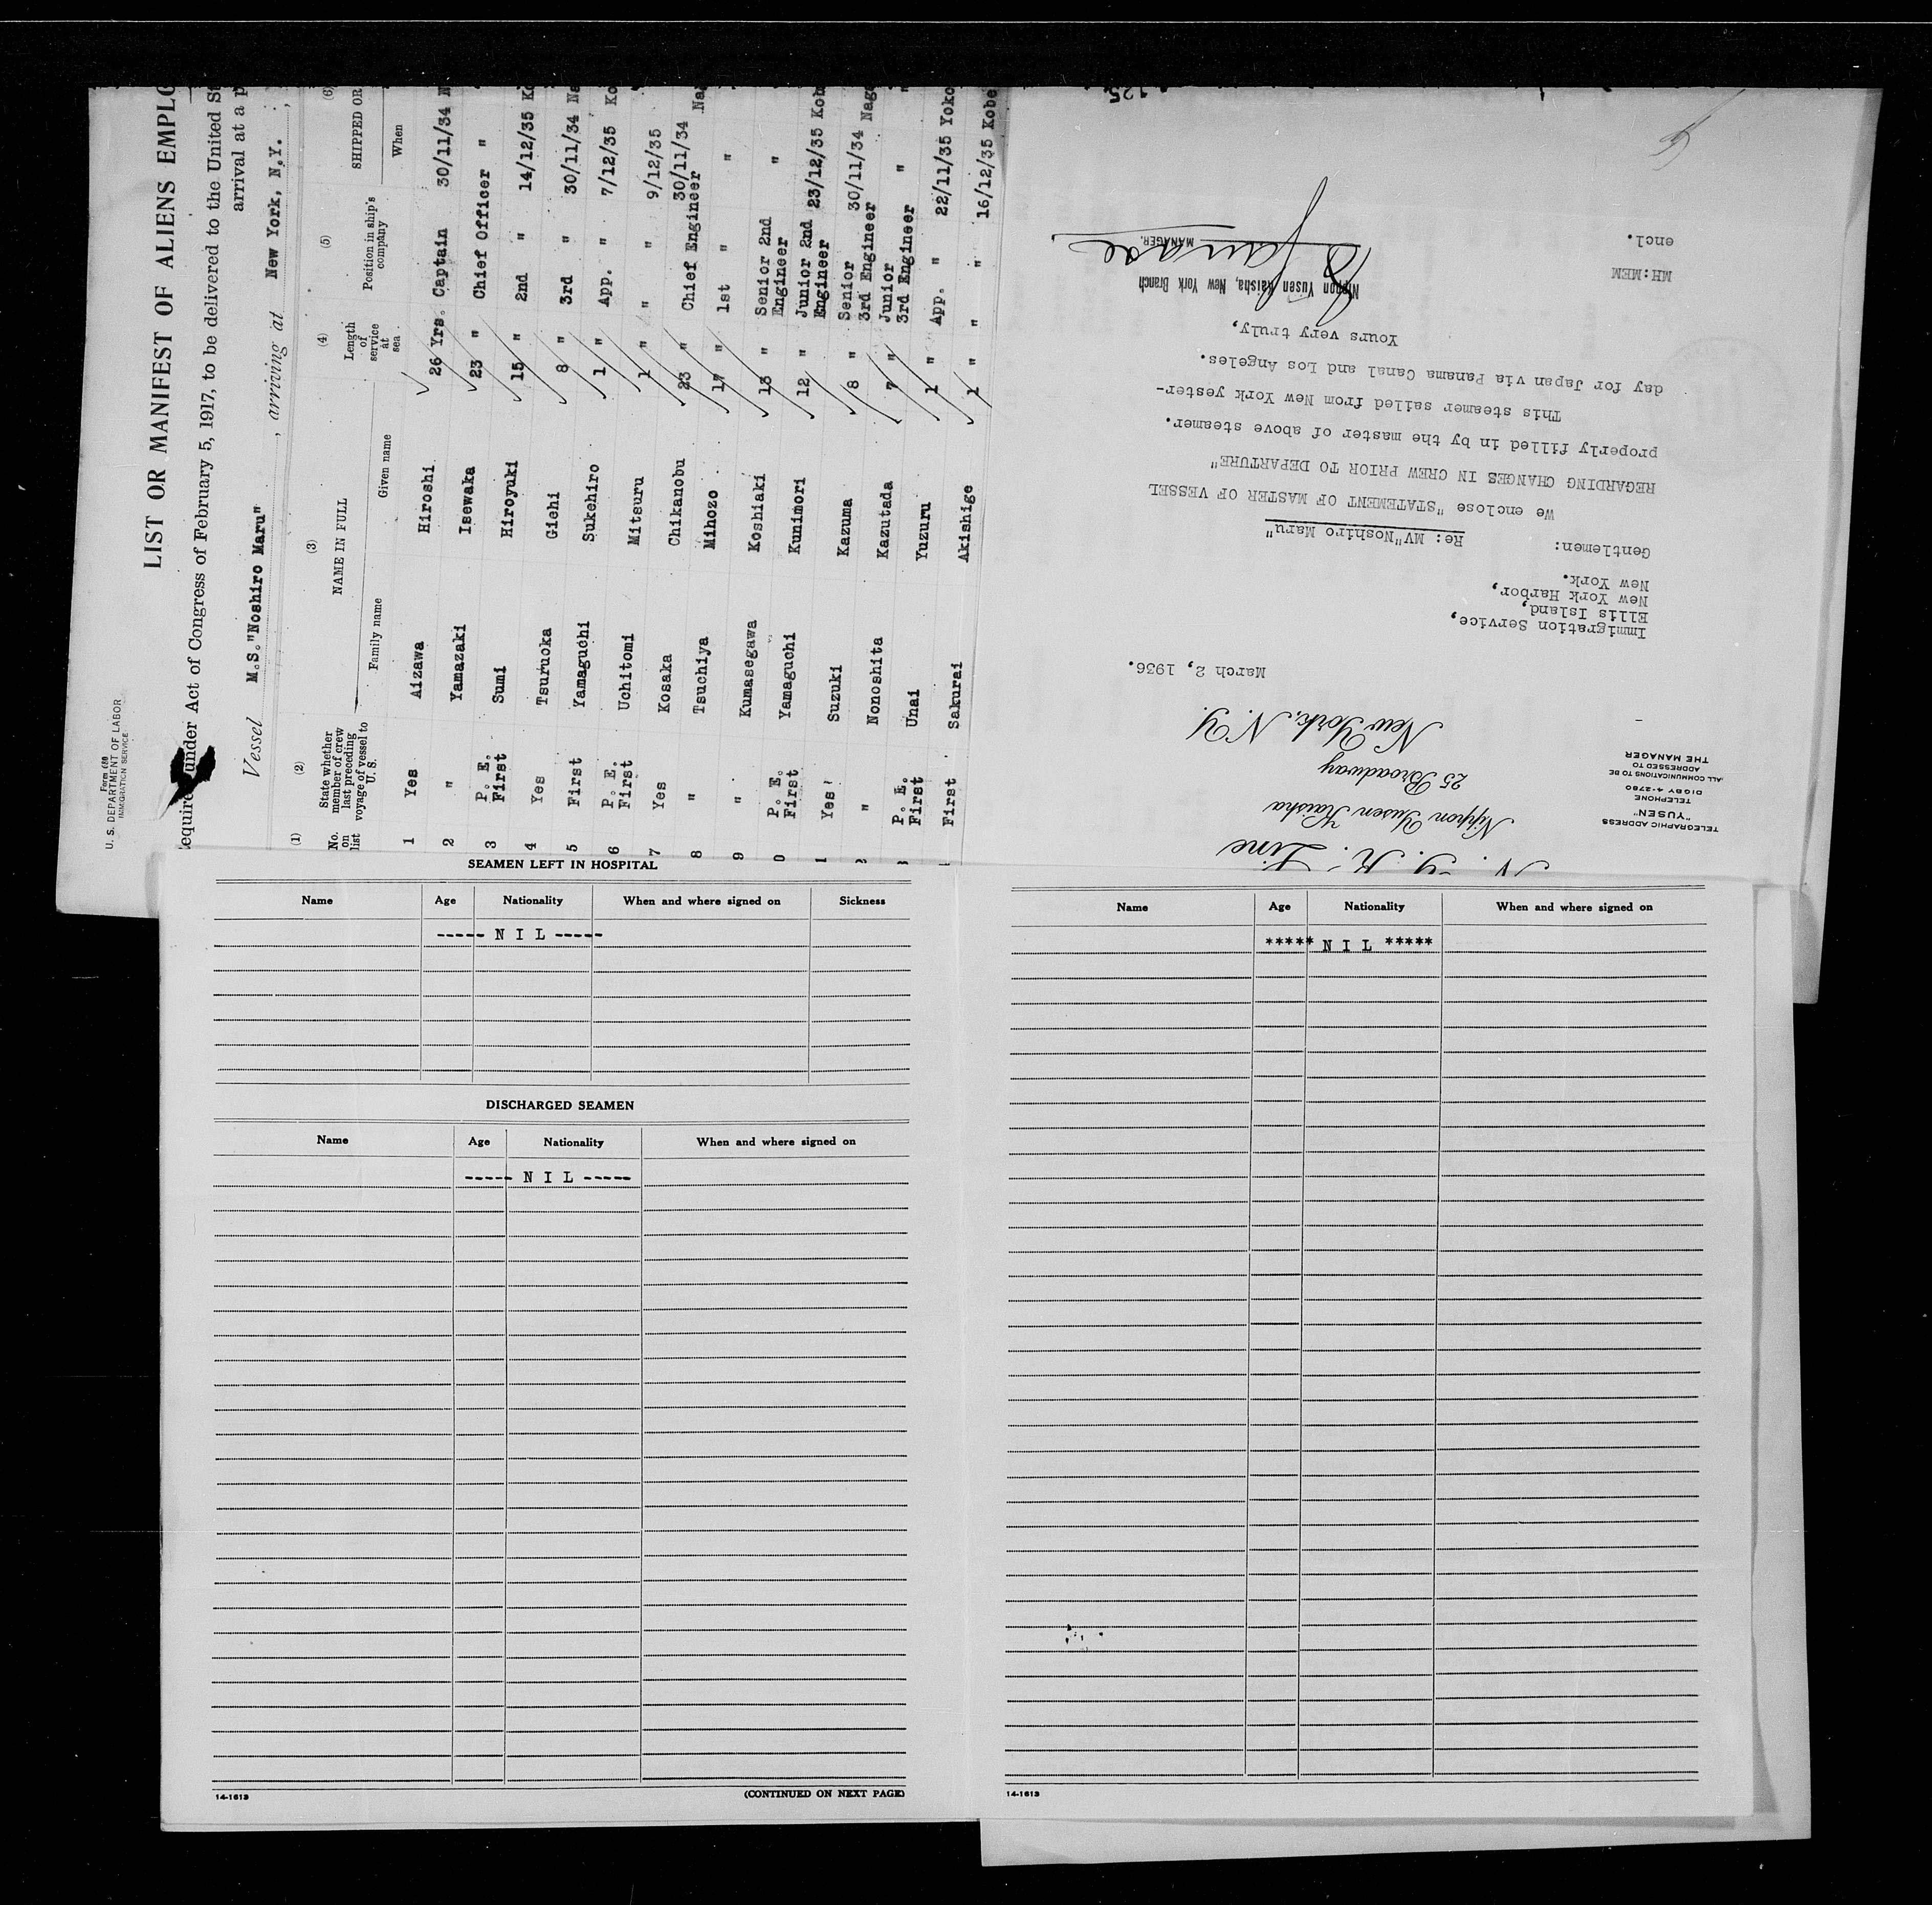 Form 680
U. S. DEPARTMENT OF LABOR
IMMIGRATION SERVICE
LIST OR MANIFEST OF ALIENS EMPLO
equire under Act of Congress of February 5, 1917, to be delivered to the United St
arrival at a p
Vessel M.S."Noshiro Maru" , arriving at New York, N.Y.
(1) (2) (3) (4) (5) (6)
No. on list
State whether member of crew last preceding voyage of vessel to U. S.
NAME IN FULL
Family name Given name
Length of service at sea
Position in ship's company
SHIPPED OR
When
1 Yes Aizawa Hiroshi 26 Yrs. Captain 30/11/34 N
2 " Yamazaki Isewaka 23 " Chief Officer "
3 P. E. First Sumi Hiroyuki 15 " 2nd " 14/12/35 Ko
4 Yes Tsuruoka Giehi 8 " 3rd " 30/11/34 Na
5 First Yamaguchi Sukehiro 1 " App. " 7/12/35 Ko
6 P. E. First Uchitomi Mitsuru 1 " " " 9/12/35 "
7 Yes Kosaka Chikanobu 23 " Chief Engineer 30/11/34 Na
8 " Tsuchiya Mihozo 17 " 1st " "
9 " Kumasegawa Koshiaki 13 " Senior 2nd Engineer "
0 P. E. First Yamaguchi Kunimori 12 " Junior 2nd Engineer 23/12/35 Kob
1 Yes Suzuki Kazuma 8 " Senior 3rd Engineer 30/11/34 Naga
2 " Nonoshita Kazutada 7 " Junior 3rd Engineer " "
3 P. E. First Unai Yuzuru 1 " App. " 22/11/35 Yoko
First Sakurai Akishige 1 " " " 16/12/35 Kobe
N. Y. K. Line
Nippon Yusen Kaisha
25 Broadway
New York, N.Y.
TELEGRAPHIC ADDRESS
"YUSEN"
TELEPHONE
DIGBY 4-2780
ALL COMMUNICATIONS TO BE
ADDRESSED TO
THE MANAGER
March 2, 1936.
Immigration Service,
Ellis Island,
New York Harbor,
New York.
Gentlemen: Re: MV"Noshiro Maru"
We enclose "STATEMENT OF MASTER OF VESSEL
REGARDING CHANGES IN CREW PRIOR TO DEPARTURE"
properly filled in by the master of above steamer.
This steamer sailed from New York yester-
day for Japan via Panama Canal and Los Angeles.
Yours very truly,
Nippon Yusen Kaisha, New York Branch
MANAGER.
MH:MEM
encl.
125
SEAMEN LEFT IN HOSPITAL
Name Age Nationality When and where signed on Sickness
----- N I L -----
DISCHARGED SEAMEN
Name Age Nationality When and where signed on
----- N I L -----
14-1613 (CONTINUED ON NEXT PAGE)
Name Age Nationality When and where signed on
***** N I L *****
14-1613